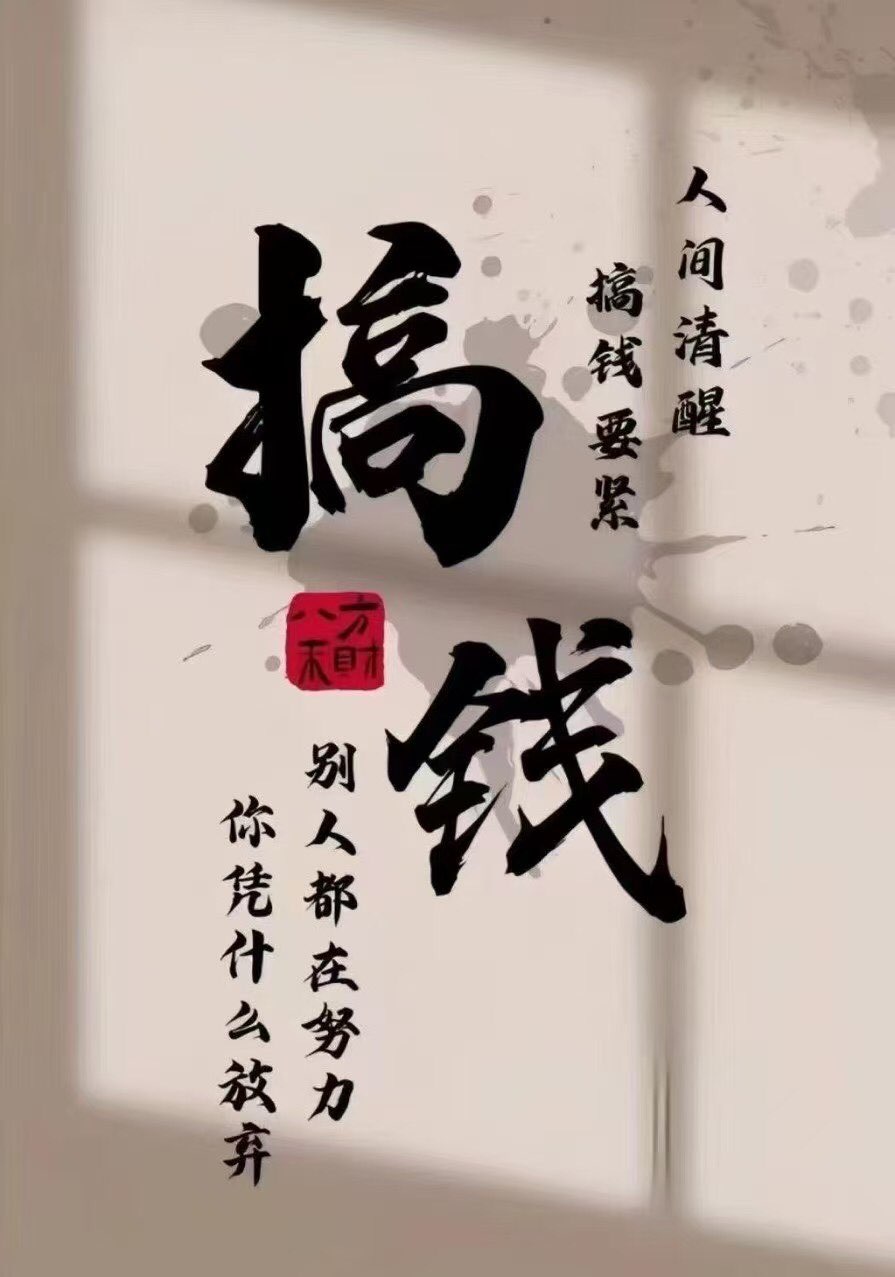 人间清醒
搞钱要紧
搞钱
八方
来财
别人都在努力
你凭什么放弃